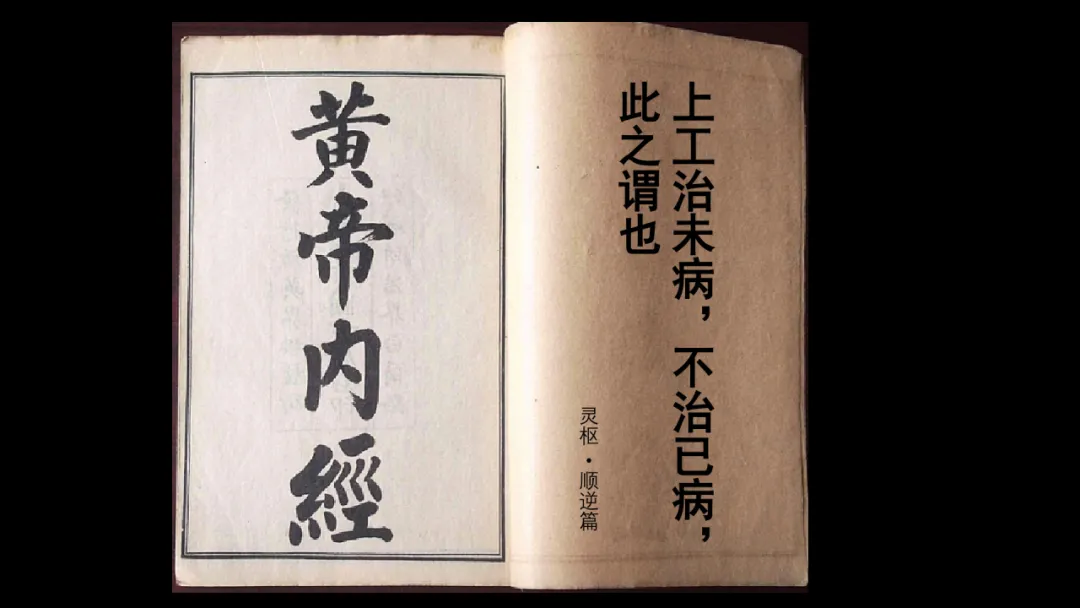 黄帝内經
上工治未病，不治已病，
此之谓也
灵枢·顺逆篇